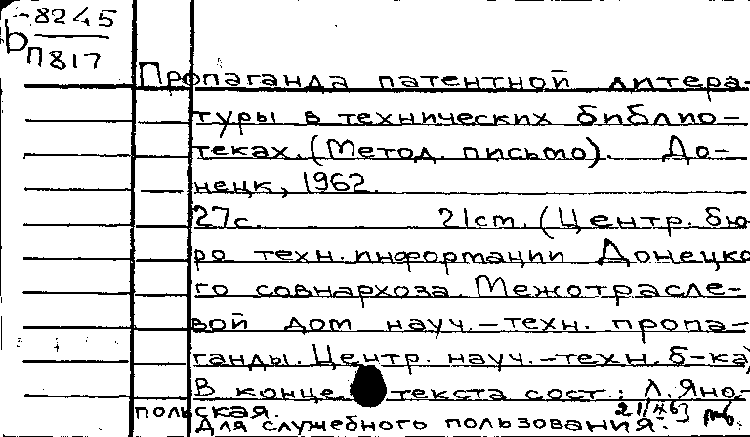 -8245
Б П817
Пропаганда патентной литера-
туры в технических библио-
теках. (Метод. письмо). До-
нецк, 1962.
27с. 21см. (Центр. бю
ро техн. информации Донецко
го совнархоза. Межотрасле-
вой дом науч.-техн. пропа-
ганды. Центр. науч.-техн. б-ка)
В конце текста сост: Л. Яно-
польская.
Для служебного пользования.